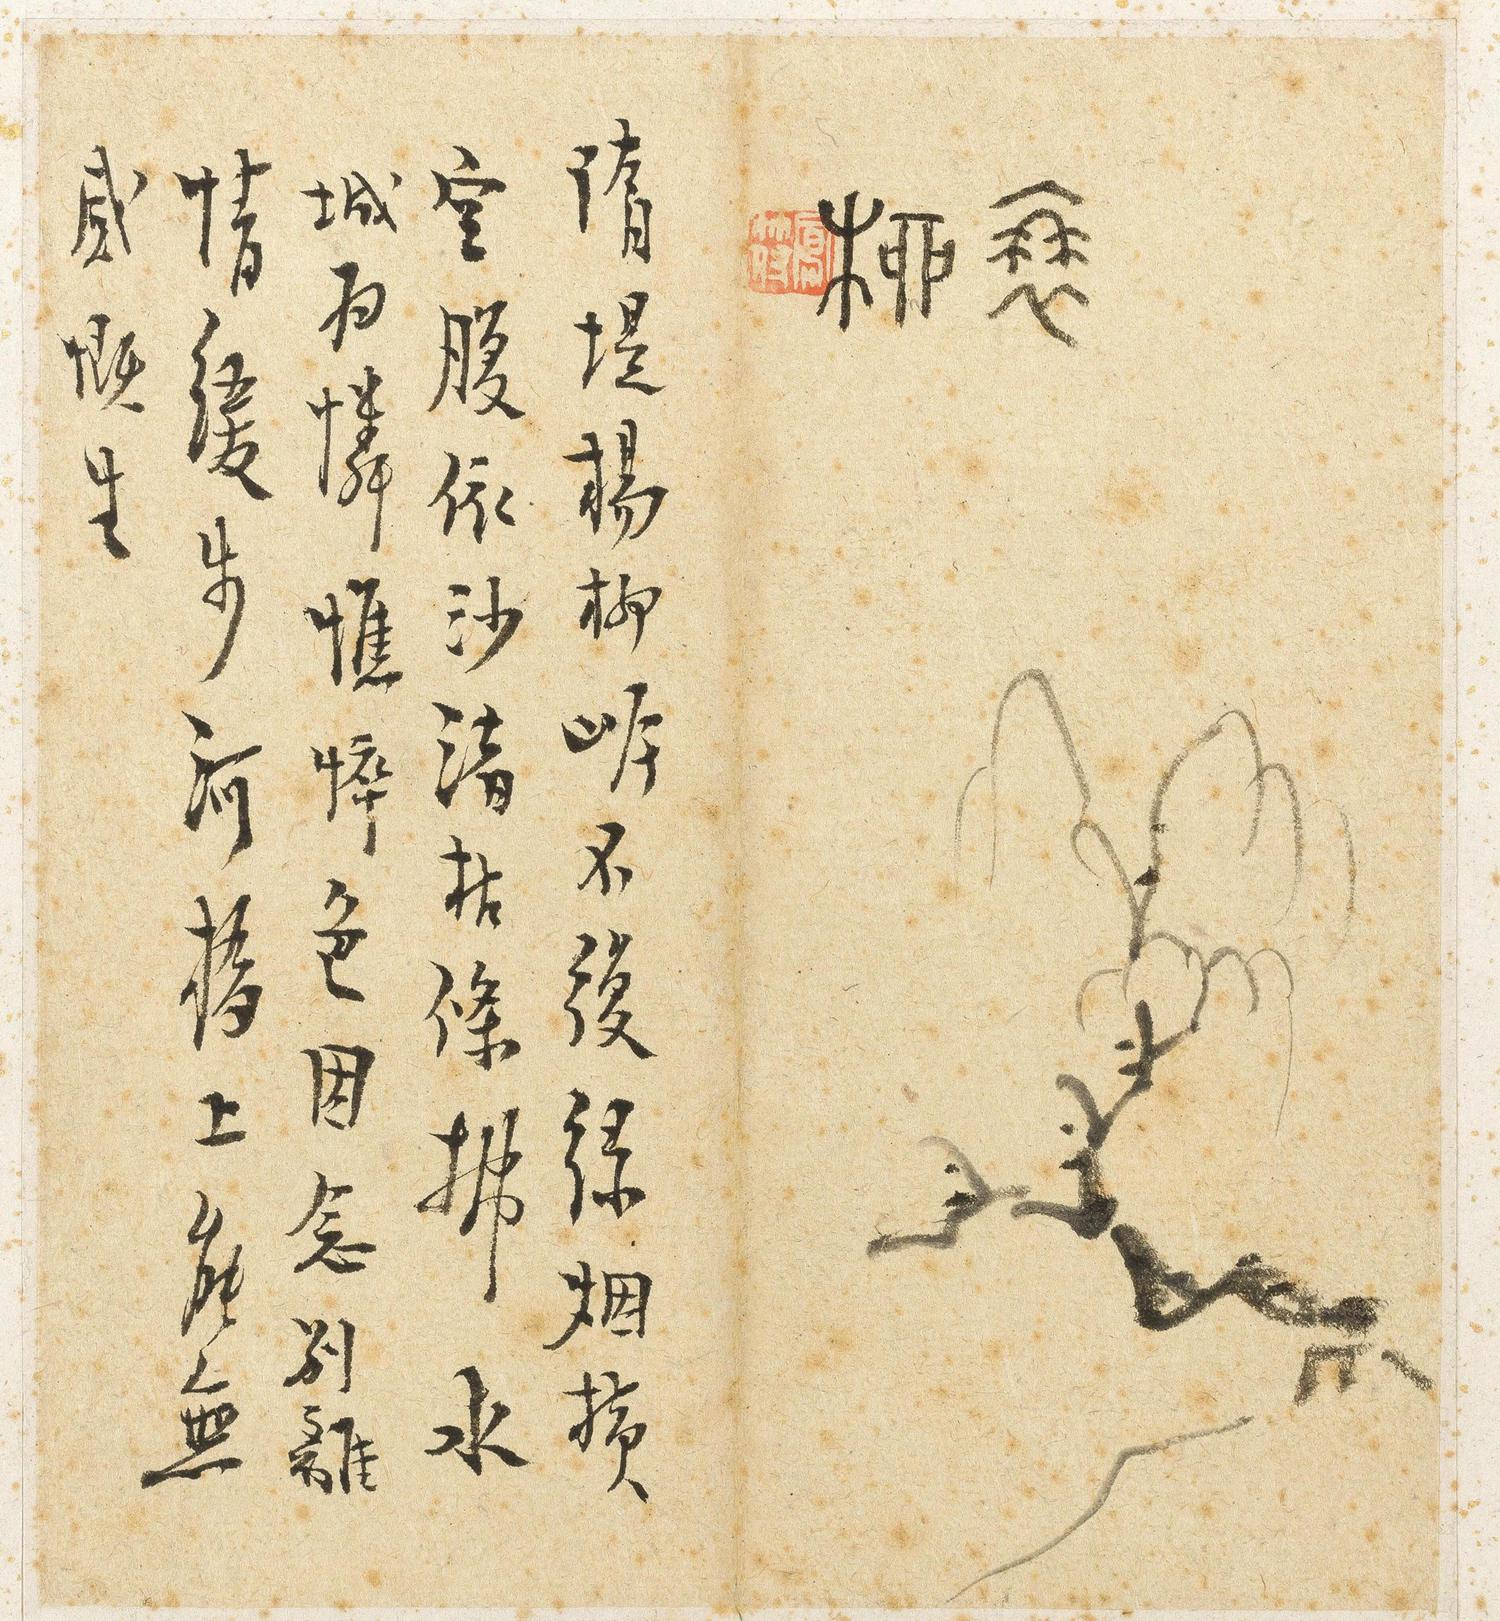 衰
柳
隋堤楊柳岸不復綠烟橫
空腹依沙渚枯條拂水
城為憐憔悴色因念別離
情緩步河橋上能無
感慨生